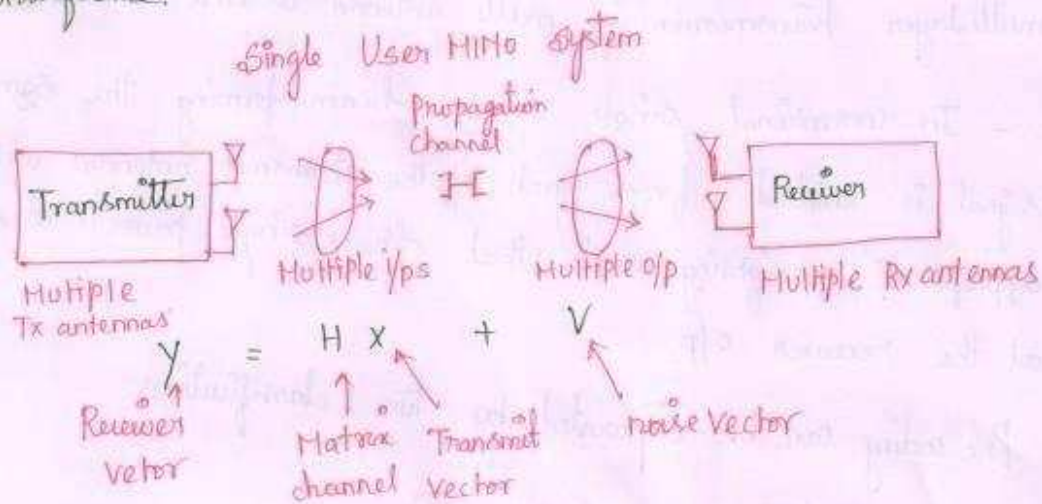 Single User MIMO System
Propagation
Channel
H
Transmitter
Receiver
Multiple i/ps
Multiple o/p
Multiple Rx antennas
Mutiple
Tx antennas
Y = H X + V
Receiver
vetor
Matrix
channel
Transmit
vector
noise vector